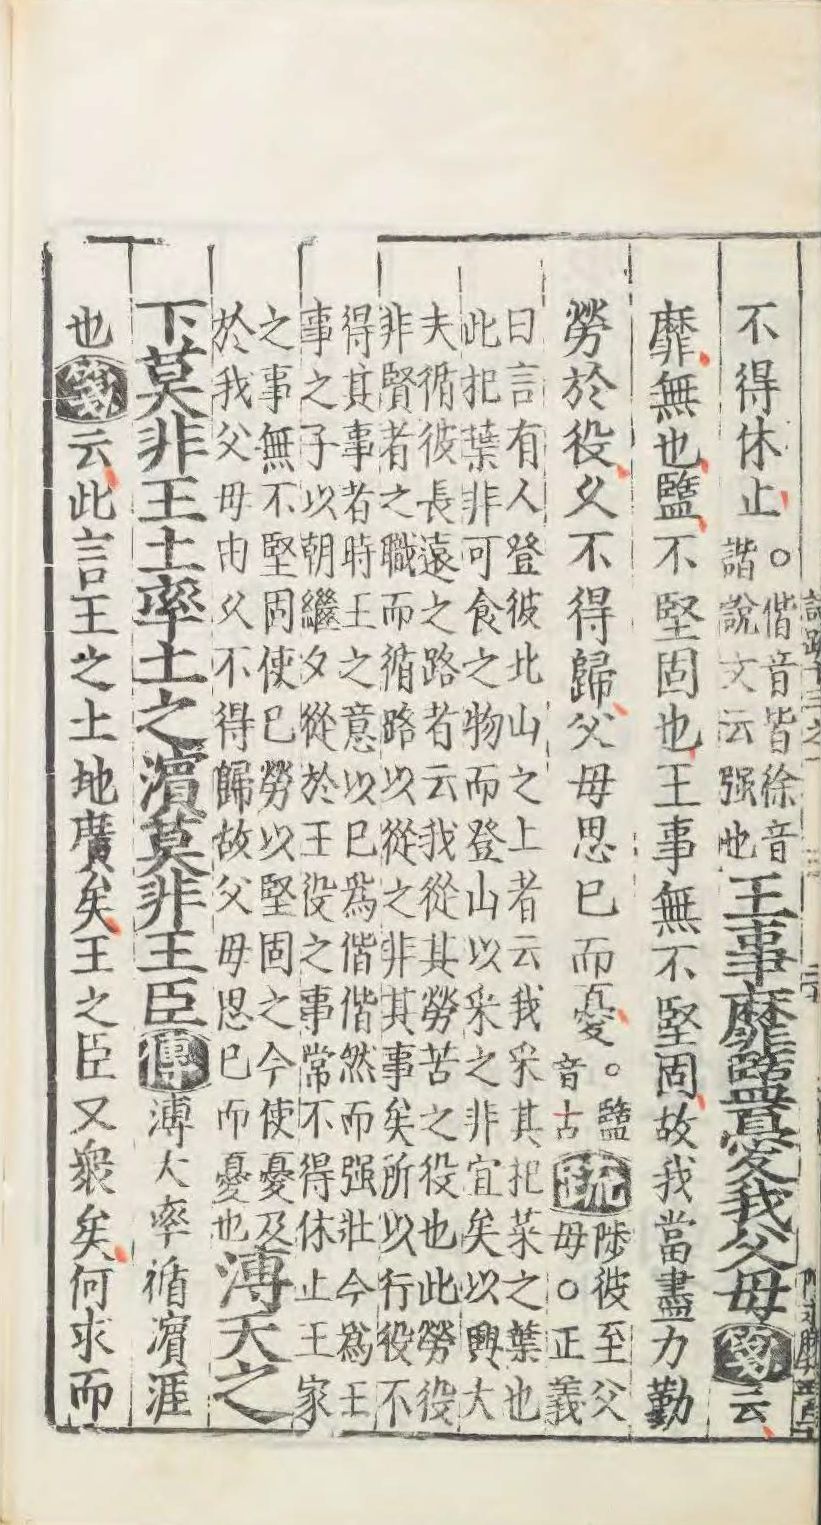 不得休止○偕音皆徐音
諧說文云强也王事靡盬憂我父母箋云
靡無也盬不堅固也王事無不堅固故我當盡力勤
勞於役久不得歸父母思已而憂○盬
音古疏陟彼至父
母○正義
曰言有人登彼北山之上者云我采其杞菜之葉也
此杞葉非可食之物而登山以采之非宜矣以興大
夫循彼長遠之路者云我從其勞苦之役也此勞役
非賢者之職而循路以從之非其事矣所以行役不
得其事者時王之意以已爲偕偕然而强壯今爲王
事之子以朝繼夕從於王役之事常不得休止王家
之事無不堅固使已勞以堅固之今使憂及
於我父母由久不得歸故父母思已而憂也溥天之
下莫非王土率土之濱莫非王臣傳溥大率循濱涯
也箋云此言王之土地廣矣王之臣又衆矣何求而